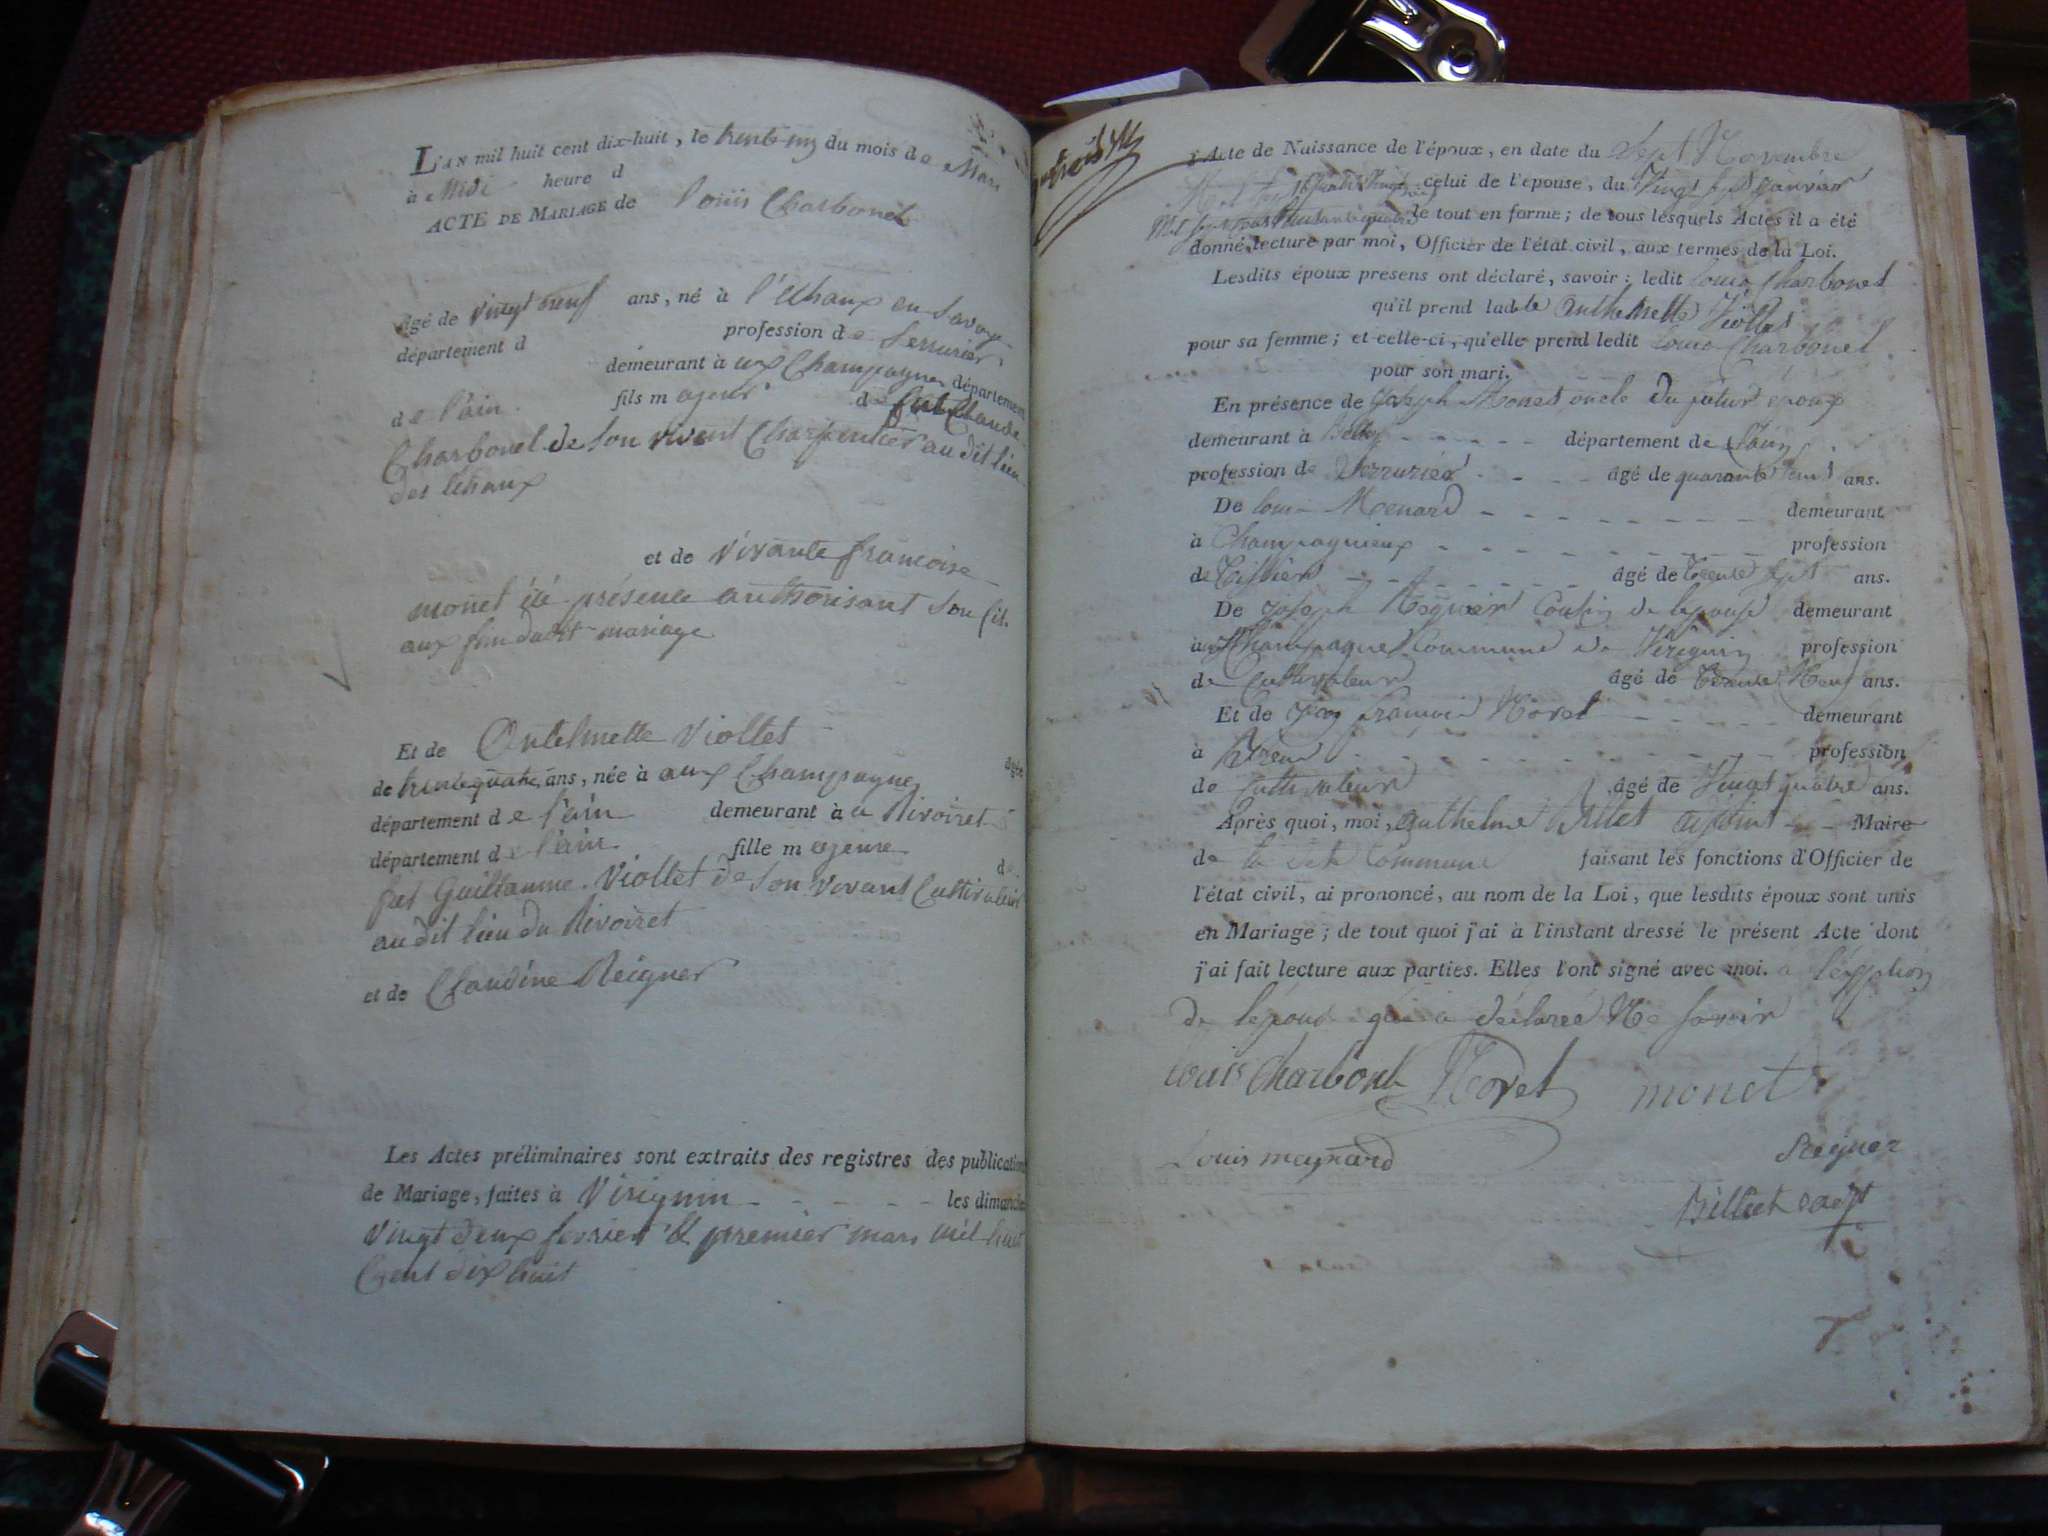 L'AN mil huit cent dix-huit, le trente un du mois de Mars
à Midi heure d
ACTE DE MARIAGE de Louis Charbonet
âgé de vingt neuf ans, né à l'Echaux en Savoye
département d profession de Serrurier
demeurant à aux Champagnes département
de l'ain fils majeur de feu Claude
Charbonel de son vivent Charpentier au dit lieu
des Echaux
et de vivante francoise
monet ici présence authorisant son fils
aux fin dudit mariage
Et de Antelmette Viollet âgée
de trente quatre ans, née à aux Champagne
département de l'ain demeurant à a Rivoiret
département de l'ain fille majeure de
feu Guillaume Viollet de son vivant Cultivateur
au dit lieu du Rivoiret
et de Claudine Reigner
Les Actes préliminaires sont extraits des registres des publication
de Mariage, faites à Virignin les dimanche
vingt deux fevrier & premier mars mil huit
Cent dix huit
Acte de Naissance de l'époux, en date du Sept Novembre
celui de l'épouse, du Vingt sept Janvier
Mil sept cent huitante quatre le tout en forme; de tous lesquels Actes il a été
donné lecture par moi, Officier de l'état civil, aux termes de la Loi.
Lesdits époux présens ont déclaré, savoir: ledit Louis Charbonet
qu'il prend ladite Anthelmette Viollet
pour sa femme; et celle-ci, qu'elle prend ledit Louis Charbonet
pour son mari.
En présence de Joseph Monet oncle du futur epoux
demeurant à Belley département de l'ain
profession de Serrurier âgé de quarante huit ans.
De Louis Menard demeurant
à Champagnieux profession
de Tissier âgé de Trente Sept ans.
De Joseph Reguier Cousin de l'epouse demeurant
aux Champagnes Commune de Virignin profession
de Cultivateur âgé de Trente Neuf ans.
Et de Jean francois Moret demeurant
à profession
de Cultivateur âgé de Vingt quatre ans.
Après quoi, moi, Anthelme Billiet adjoint Maire
de la dite Commune faisant les fonctions d'Officier de
l'état civil, ai prononcé, au nom de la Loi, que lesdits époux sont unis
en Mariage; de tout quoi j'ai à l'instant dressé le présent Acte dont
j'ai fait lecture aux parties. Elles l'ont signé avec moi. à l'exeption
de l'epouse qui a déclaré Ne savoir
Louis Charbonet Moret monet
Louis meynard Reguer
Billiet adjt